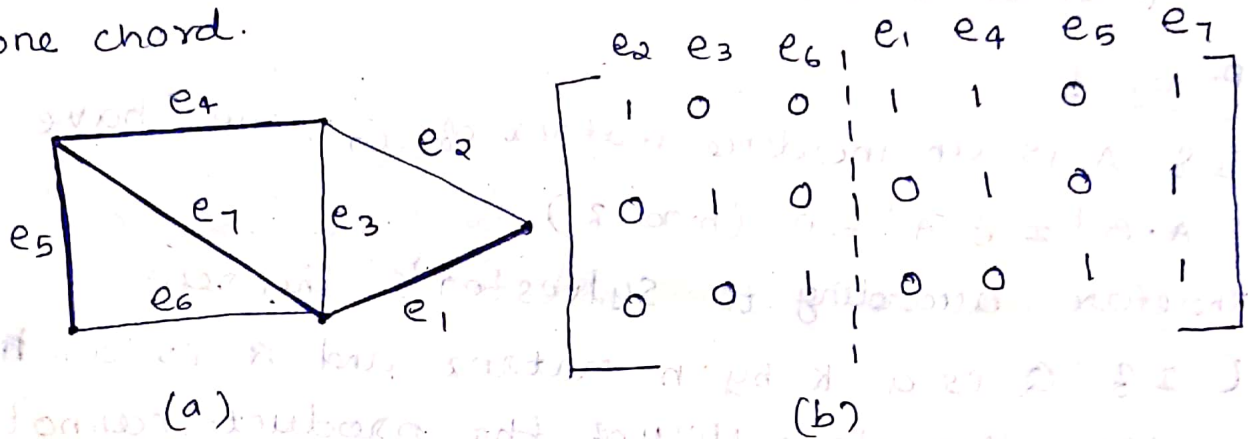 one chord.
e4
e2
e7
e3
e5
e6
e1
(a)
e2 e3 e6 e1 e4 e5 e7
1 0 0 1 1 0 1
0 1 0 0 1 0 1
0 0 1 0 0 1 1
(b)